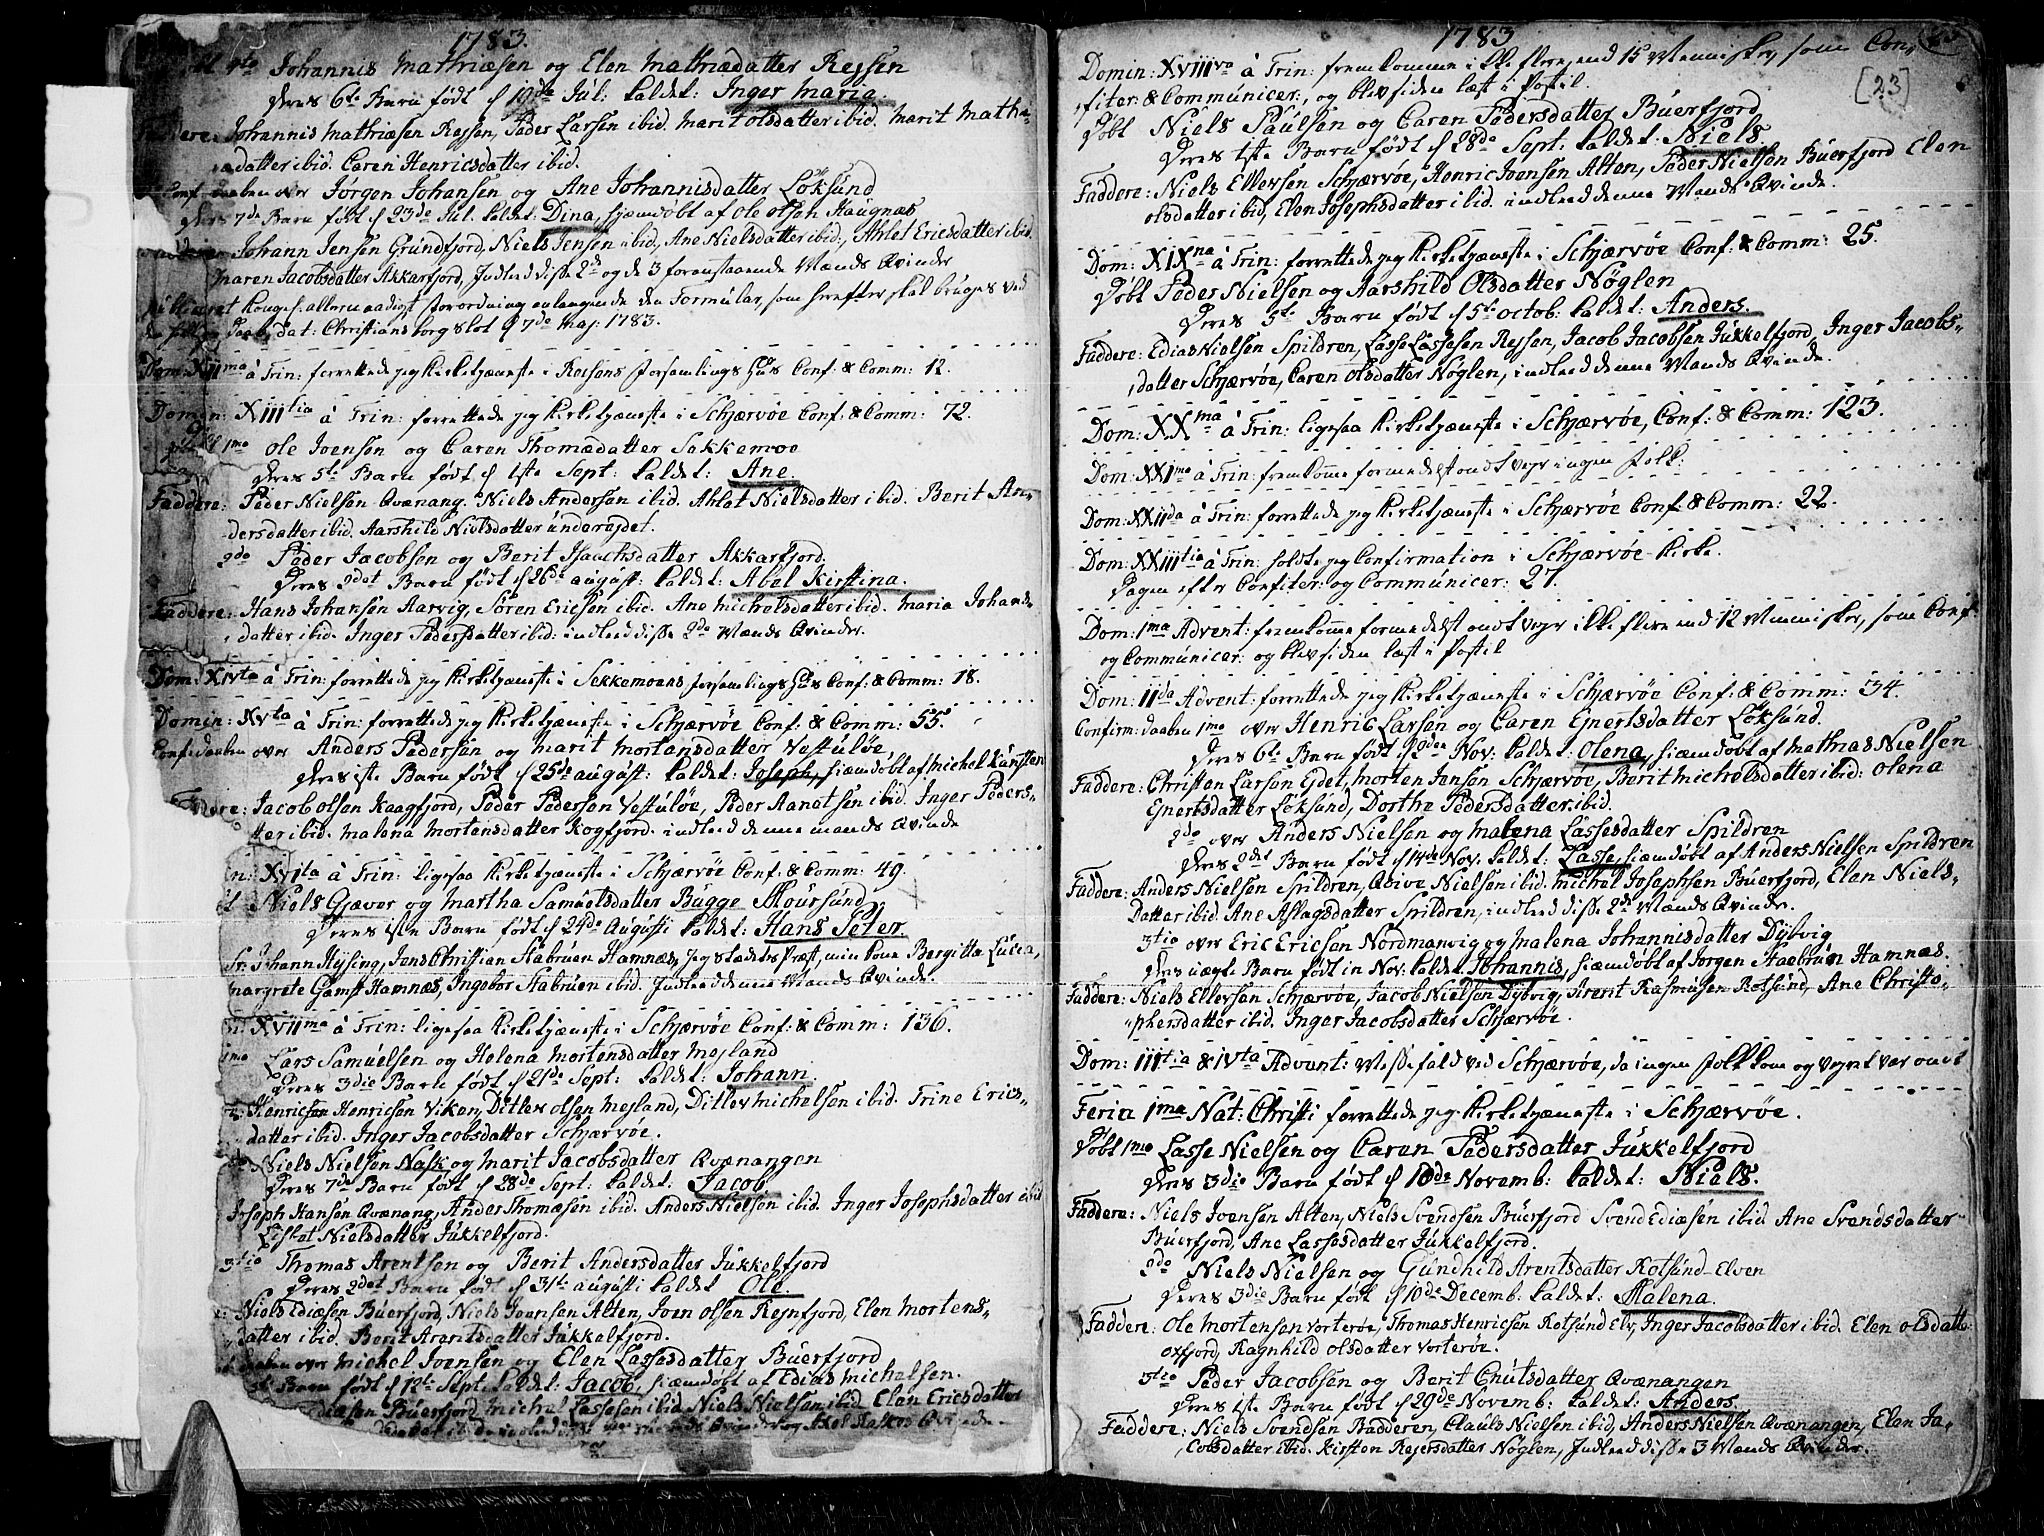 1783.
Johannis Mathiæsen og Elen Mathiædatter Rejsen
Deres 6te Barn født d 19de Jul: kaldet: Inger Maria.
Faddere: Johannis Mathiæsen Rejsen, Peder Larsen ibid. Marit olsdatter ibid. Marit Mathi-
ædatter ibid. Caren Henricsdatter ibid.
Conf: daaben over Jørgen Johansen og Ane Johannisdatter Løksund
Deres 7de Barn født d 23de Jul. kaldet: Dina, hjemdøbt af Ole olsen Haugnæs
Johann Jensen Grundfjord, Niels Jensen ibid, Ane Nielsdatter ibid., Ahlet Ericsdatter ibid.
Maren Jacobsdatter Akkarfjord, Indleed disse 2de og de 3 foranstaaende Mænds Qvinder
publiceret Kongel. allernaadigst forordning anlangende den Formular, som herefter skal bruges ved
Daab, dat: Christiansborg slot d 7de Maj: 1783.
Dom: XIIma à Trin: forrettede jeg Kirketjæneste i Reisens forsamlings Hús Conf: & Comm: 12.
Domin: XIIItia à Trin: forrettede jeg Kirketjæneste i Schjærvøe Conf: & Comm: 72.
døbt 1mo Ole Ivensen og Caren Thomædatter Sekkemoe
Deres 5te Barn født d 1ste Sept: kaldet: Ane.
Faddere: Peder Nielsen Qvænang. Niels Andersen ibid. Ahlet Nielsdatter ibid. Berit An-
dersdatter ibid. Aarshild Nielsdatter underejdet.
2do Peder Jacobsen og Berit Isaachsdatter Akkarfjord.
Deres 2det Barn født d 26de august: kaldet: Abel Kirstina.
Faddere: Hans Johansen Aarvig, Søren Ericsen ibid. Ane Michelsdatter ibid. Maria Johans-
datter ibid. Inger Pedersdatter ibid: indleed disse 2de Mænds Qvinder.
Dom: XIVta à Trin: forrettede jeg Kirketjæneste i Sekkemoens forsamlings Hús Conf: & Comm: 18.
Domin: XVta à Trin: forrettede jeg Kirketjæneste i Schjærvøe Conf: & Comm: 55.
Conf: daaben over Anders Pedersen og Marit Mortensdatter Vestuløe,
Deres 1ste Barn født d 25de august: kaldet: Joseph, hiemdøbt af Michel Kunsten
Faddere: Jacob olsen Kaagfjord, Peder Pedersen Vestuløe, Peder Aanetsen ibid. Inger Peders-
datter ibid. Malena Mortensdatter Kogfjord. indleed denne mands Qvinde
XVIta à Trin: ligesaa Kirketjæneste i Schjærvøe Conf: & Comm: 49.
Niels Gjæver og Martha Samuelsdatter Bugge Moursund
Deres 1ste Barn født d 24de Augusti kaldet: Hans Peter.
Sr. Johann Hysing, Jens Christian Stabrúen Hamnæs, Jeg stedets Præst, min kone Bergitta Lúcia,
Margrete Gamst Hamnæs, Ingebor Stabrúen ibid. Indleed denne Mands Qvinde.
XVIIma à Trin: ligesaa Kirketjæneste i Schjærvøe Conf: & Comm: 136.
1mo Lars Samuelsen og Helena Mortensdatter Mejland
Deres 3die Barn født d 21de Sept: kaldet: Johann.
Henricsen Henricsen Viken, Ditlev olsen Mejland, Ditlev Michelsen ibid. Trine Erics-
datter ibid. Inger Jacobsdatter Schjærvøe.
Niels Nielsen Nask og Marit Jacobsdatter Qvænangen
Deres 7de Barn født d 28de Sept: kaldet: Jacob
Joseph Hansen Qvænang, Anders Thomæsen ibid. Anders Nielsen ibid. Inger Josephsdatter ibid
Lisbet Nielsdatter Jukkelfjord.
3tio Thomas Arentsen og Berit Andersdatter Jukkelfjord
Deres 2det Barn født d 31te augusti kaldet Ole.
Niels Ediæsen Búerfjord, Niels Ivensen Alten, Iven olsen Rejnfjord, Elen Mortens-
datter ibid. Berit Arentsdatter Jukkelfjord.
daaben over Michel Ivensen og Elen Lassesdatter Búerfjord
Barn født d 12te Sept. kaldet: Jacob, hiemdøbt af Edias Michelsen.
Ediæsen Búerfjord, Michel Lassesen ibid, Niels Nielsen ibid, Elen Ericsdatter
1783
[23]
Domin: XVIIIva à Trin: fremkomme ikke flere, end 15 Mennisker, som Con-
fiter: & Communicer:, og blev siden læst i Postil.
Døbt Niels Paulsen og Caren Pedersdatter Búerfjord
Deres 1ste Barn født d 28de Sept: kaldet: Niels.
Faddere: Niels Ellevsen Schjærvøe, Henric Ivensen Alten, Peder Nielsen Búerfjord Elen
olsdatter ibid, Elen Josephsdatter ibid. indleed denne Mands Qvinde.
Dom: XIXna à Trin: forrettede jeg Kirketjæneste i Schjærvøe Conf: & Comm: 25.
Døbt Peder Nielsen og Aarshild Olsdatter Nøglen
Deres 5te Barn født d 5te octob: kaldet: Anders.
Faddere: Edias Nielsen Spildren, Lasse Lassesen Rejsen, Jacob Jacobsen Jukkelfjord, Inger Jacobs-
datter Schjærvøe, Caren olsdatter Nøglen, indleed denne Mands Qvinde.
Dom: XXma à Trin: ligesaa Kirketjæneste i Schjærvøe, Conf: & Comm: 123.
Dom: XXIma à Trin: fremkomme formedelst ondt vejr ingen folk.
Dom: XXIIda à Trin: forrettede jeg Kirketjæneste i Schjærvøe Conf: & Comm: 22.
Dom: XXIIItia à Trin: holdte jeg Confirmation i Schjærvøe Kirke.
Dagen efter Confiter: og Communicer: 27.
Dom: 1ma Advent: fremkomme formedelst ondt vejr ikke flere end 12 Mennisker, som Conf:
og Communicer: og blev siden læst i Postil
Dom: IIda Advent: forrettede jeg Kirketjæneste i Schjærvøe Conf: & Comm: 34.
Confirm: daaben 1mo over Henric Larsen og Caren Ejnertsdatter Løksund.
Deres 6te Barn født d 2den Nov: kaldet: Olena, hiemdøbt af Mathias Nielsen
Faddere: Christen Larsen Ejdet, Morten Jensen Schjærvøe, Berit Michelsdatter ibid: Olena
Ejnertsdatter Løksund, Dorthe Pedersdatter ibid.
2do over Anders Nielsen og Malena Lassesdatter Spildren
Deres 2det Barn født d 14de Nov. kaldet: Lasse, hiemdøbt af Anders Nielsen Spildren
Faddere: Anders Nielsen Spildren, Qvive Nielsen ibid. Michel Josephsen Búerfjord, Elen Niels-
Datter ibid. Ane Aslagsdatter Spildren, indleed disse 2de Mænds Qvinder.
3tio over Eric Ericsen Nordmanvig og Malena Johannisdatter Dybvig
Deres uægte Barn født in Nov: kaldet Johannis, hiemdøbt af Jørgen Staebrúen Hamnæs.
Faddere: Niels Ellevsen Schjærvøe, Jacob Nielsen Dybvig, Arent Rasmusen Rotsund, Ane Christo-
phersdatter ibid. Inger Jacobsdatter Schjærvøe.
Dom: IIItia & IVta Advent: Messefald ved Schjærvøe, da ingen folk kom og vejret var ondt
Feria 1ma Nat: Christi forrettede jeg Kirketjæneste i Schjærvøe.
Døbt 1mo Lasse Nielsen og Caren Pedersdatter Jukkelfjord
Deres 3die Barn født d 10de Novemb: kaldet: Niels.
Faddere: Niels Ivensen Alten, Niels Svendsen Búerfjord Svend Ediæsen ibid Ane Svendsdatter
Búerfjord, Ane Lassesdatter Jukkelfjord.
2do Niels Nielsen og Gundhild Arentsdatter Rotsund-Elven
Deres 3die Barn født d 10de Decemb: kaldet: Malena.
Faddere: Ole Mortensen Vorterøe, Thomas Henricsen Rotsund Elv, Inger Jacobsdatter ibid. Elen olsdatter
oxfjord, Ragnhild olsdatter Vorterøe.
3tio Peder Jacobsen og Berit Cnutsdatter Qvænangen
Deres 1ste Barn født d 29de Novemb: kaldet: Anders.
Faddere: Niels Svendsen Bradderen, Clauls Nielsen ibid, Anders Nielsen Qvænangen, Elen Ja-
cobsdatter ibid. Kirsten Rejersdatter Nøglen, Indleed disse 3 Mænds Qvinder.